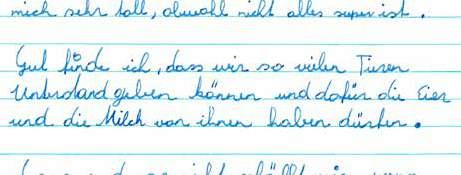 mich sehr toll, obwohl nicht alles super ist.
Gut finde ich, dass wir so vielen Tieren
Unterstand geben können und dafür die Eier
und die Milch von ihnen haben dürfen.